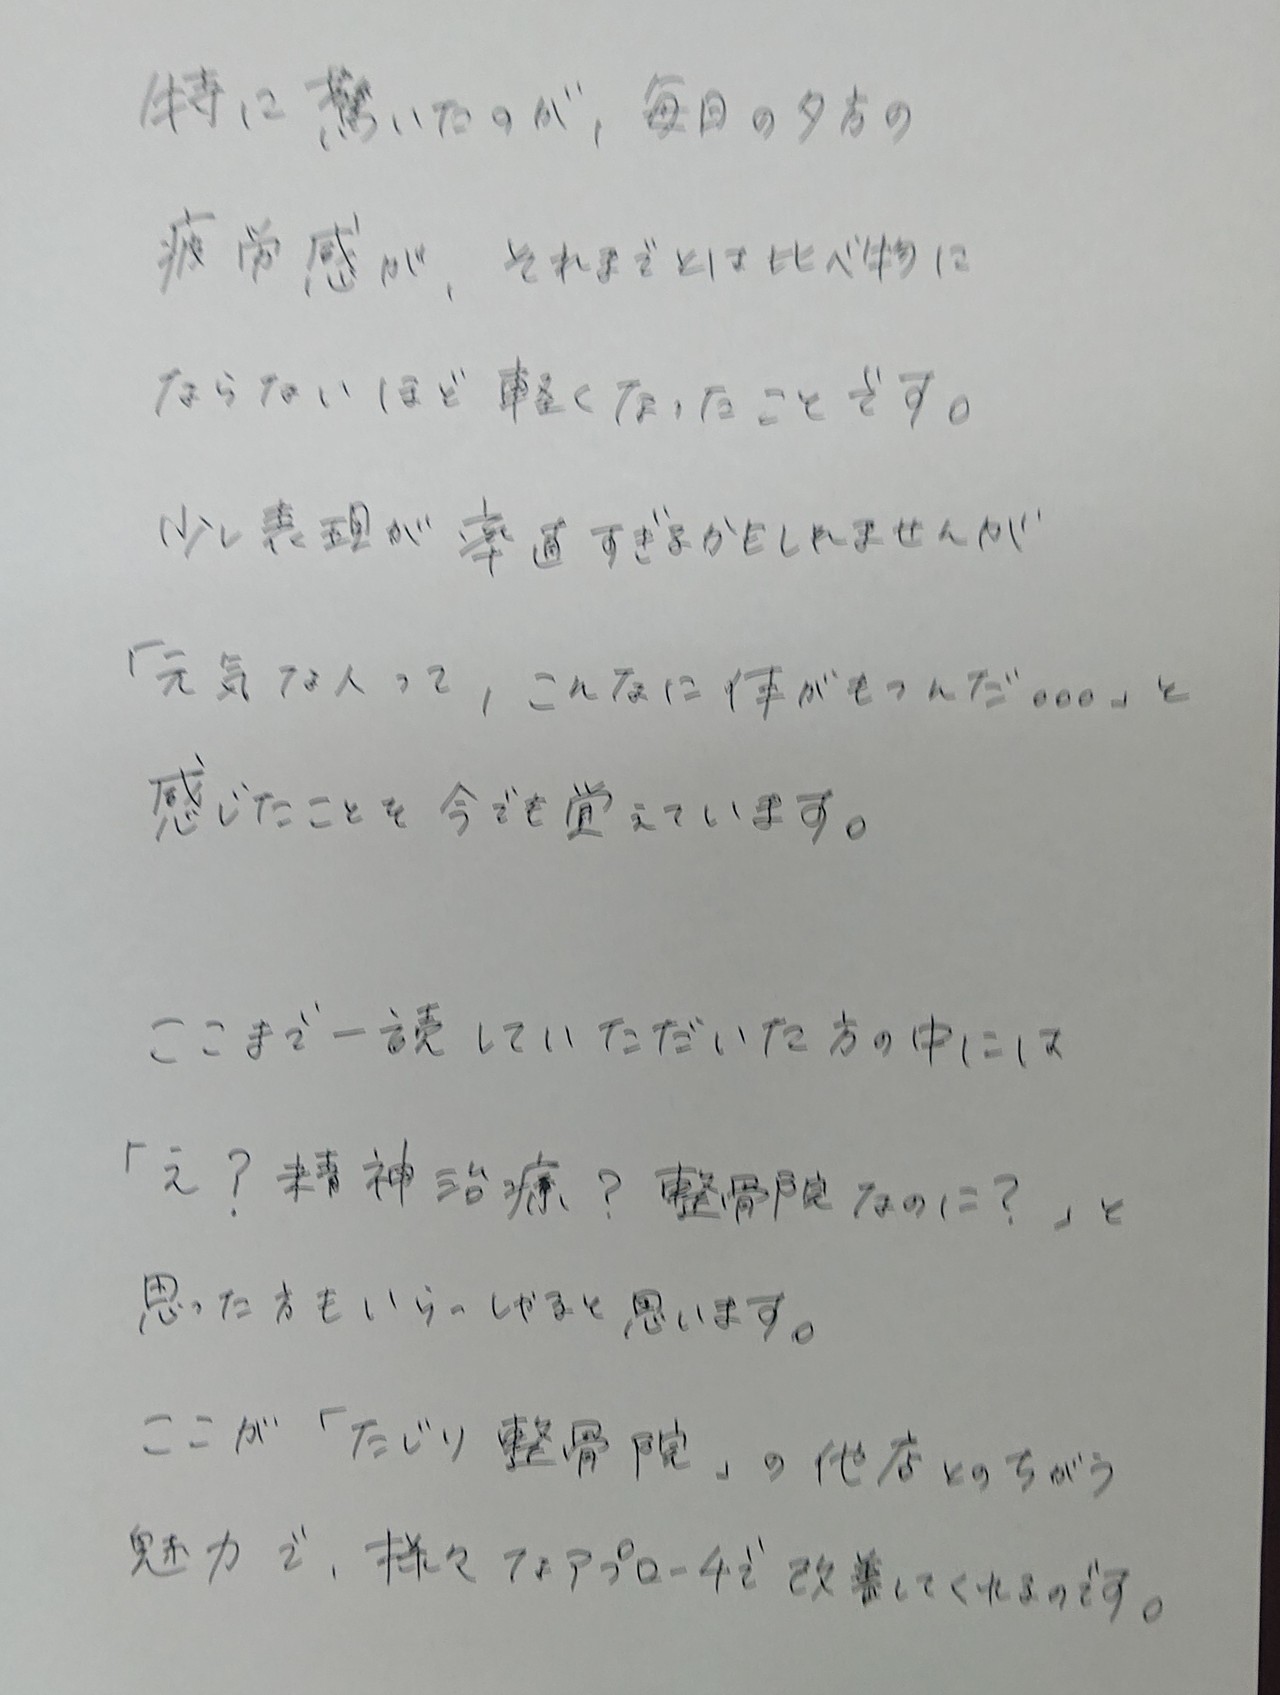 特に驚いたのが,毎日の夕方の
疲労感が,それまでとは比べ物に
ならないほど軽くなったことです。
少し表現が率直すぎるかもしれませんが
「元気な人って,こんなに体がもつんだ...」と
感じたことを今でも覚えています。
ここまで一読していただいた方の中には
「え?精神治療?整骨院なのに?」と
思った方もいらっしゃると思います。
ここが「たじり整骨院」の他店とのちがう
魅力で,様々なアプローチで改善してくれるのです。